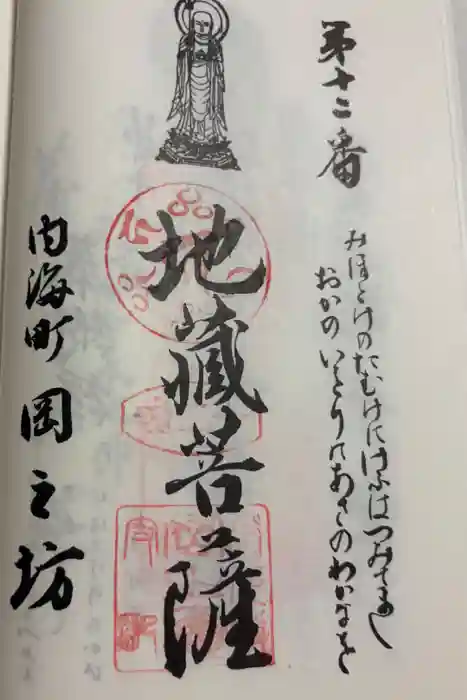 第十二番
みほとけのたむけにけふはつみてまし
おかのいほりにあさのわかなを
地藏菩薩
内海町 岡之坊